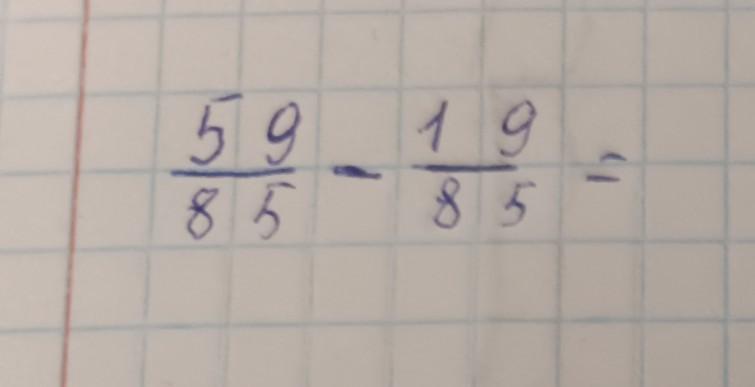 59/85 - 19/85 =